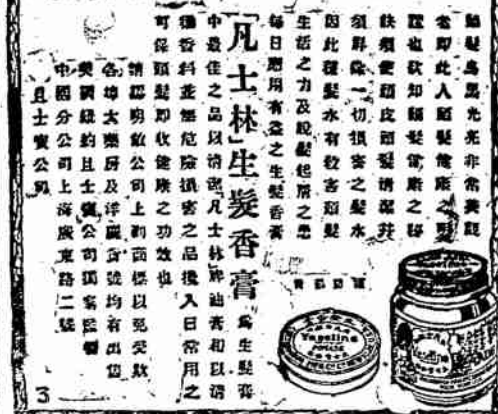 頭髮烏黑光亮非常美觀
者即此人頭髮健康之明
證也欲知頭髮健康之秘
訣須使頭皮頭髮清潔并
須屏除一切損害之髮水
因此種髮水有殺害頭髮
生活之力及脫髮起屑之患
每日應用有益之生髮香膏
「凡士林」生髮香膏 為生髮膏
中最佳之品以清潔凡士林牌油膏和以清
香料並無危險損害之品攙入日常用之
可保頭髮即收健康之功效也
請認明敝公司上列商標以免受欺
各埠大藥房及洋廣貨號均有出售
美國紐約且士寶公司獨家監製
中國分公司上海廣東路二號
且士寶公司
Vaseline
POMADE
Vaseline
3